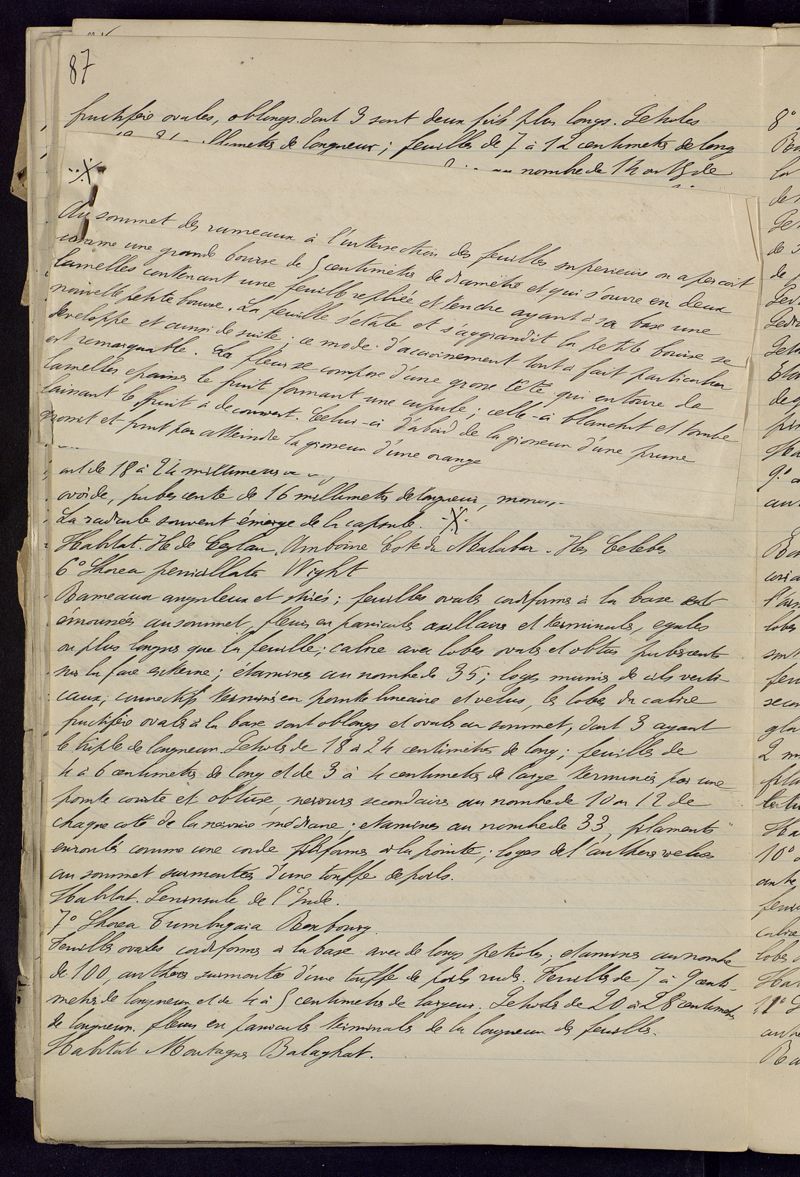 87
fructifère ovales, oblongs dont 3 sont deux fois plus longs. Petioles
millimetres de longueur; feuilles de 7 à 12 centimetres de long
nombre de 14 ou 15 de
Au sommet des rameaux à l'intersection des feuilles superieures on apercoit
comme une grande bourse de 5 centimetres de diametre et qui s'ouvre en deux
lamelles contenant une feuille repliée et tendre ayant à sa base une
nouvelle petite bourse. La feuille s'etale et s'aggrandit la petite bourse se
developpe et ainsi de suite; ce mode d'accroissement tout à fait particulier
est remarquable. La fleur se compose d'une grosse tête qui entoure de
lamelles epaisses le fruit formant une cupule; celle-ci blanchit et tombe
laissant le fruit à decouvert. Celui-ci d'abord de la grosseur d'une prune
grossit et finit par atteindre la grosseur d'une orange
ont de 18 à 24 millimetres
ovoïde, pubescente de 16 millimetres de longueur,
La radicule souvent émerge de la capsule.
Habitat. Ile de Ceylan, Amboine Cote du Malabar. Iles Celebes
6° Shorea penicillata Wight
Rameaux anguleux et striés; feuilles ovales cordiformes à la base
émoussées au sommet, fleurs en panicules axillaires et terminales, egales
ou plus longues que la feuille; calice avec lobes ovales et obtus pubescents
sur la face externe; étamines au nombre de 35; loges munies de cils verti-
caux, connectif terminé en pointe lineaire et velue, les lobes du calice
fructifère ovales à la base sont oblongs et ovales au sommet, dont 3 ayant
le triple de longueur. Petioles de 18 à 24 centimetres de long; feuilles de
4 à 6 centimetres de long et de 3 à 4 centimetres de large terminées par une
pointe courte et obtuse, nervures secondaires au nombre de 10 ou 12 de
chaque coté de la nervure médiane; etamines au nombre de 33, filaments
enroulés comme une corde filiformes à la pointe; loges de l'anthere velues
au sommet surmontées d'une touffe de poils.
Habitat. Peninsule de l'Inde.
7° Shorea Tumbugaia Roxbourg.
Feuilles ovales cordiformes à la base avec de longs petioles; etamines au nombre
de 100, antheres surmontées d'une touffe de poils rudes. Feuilles de 7 à 9 centi-
metres de longueur et de 4 à 5 centimetres de largeur. Petioles de 20 à 28 centimetres
de longueur. fleurs en panicules terminales de la longueur des feuilles.
Habitat Montagnes Balaghat.
8°
9°
10°
11°